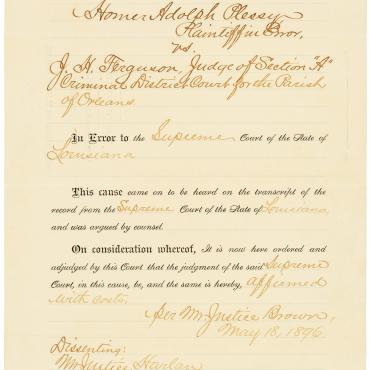 Homer Adolph Plessy
Plaintiff in Error,
vs.
J. H. Ferguson, Judge of Section "A"
Criminal District Court for the Parish
of Orleans.
In Error to the Supreme Court of the State of
Louisiana
This cause came on to be heard on the transcript of the
record from the Supreme Court of the State of Louisiana,
and was argued by counsel.
On consideration whereof, It is now here ordered and
adjudged by this Court that the judgment of the said Supreme
Court, in this cause, be, and the same is hereby, affirmed
with costs.
Per Mr. Justice Brown,
May 18, 1896.
Dissenting:
Mr. Justice Harlan